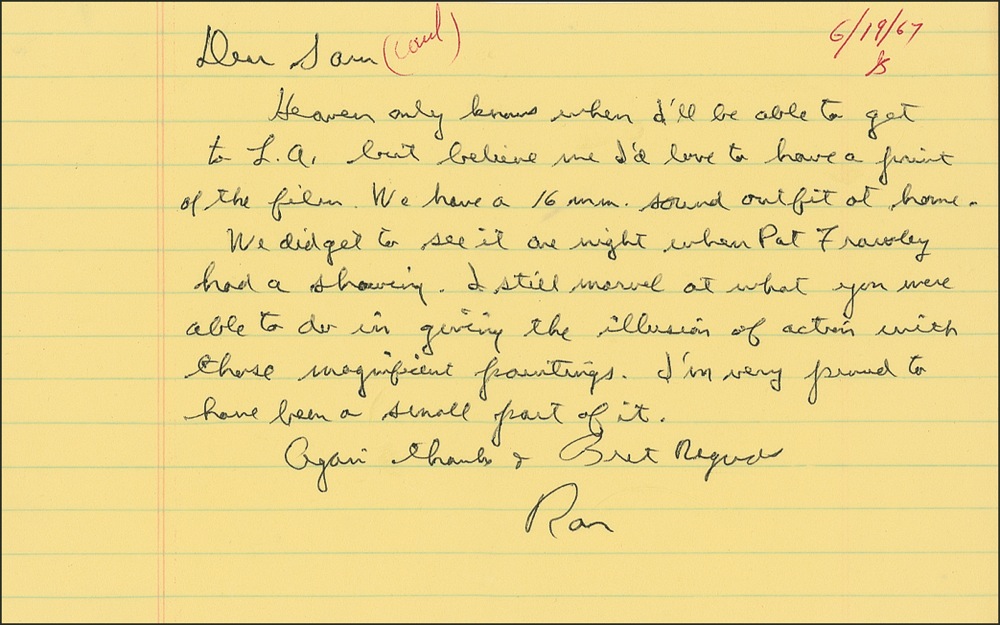 Dear Sam
6/19/67
Heaven only knows when I'll be able to get
to L.A. but believe me I'd love to have a print
of the film. We have a 16 mm. sound outfit at home.
We did get to see it one night when Pat Frawley
had a showing. I still marvel at what you were
able to do in giving the illusion of action with
those magnificent paintings. I'm very proud to
have been a small part of it.
Again thanks & Best Regards
Ron